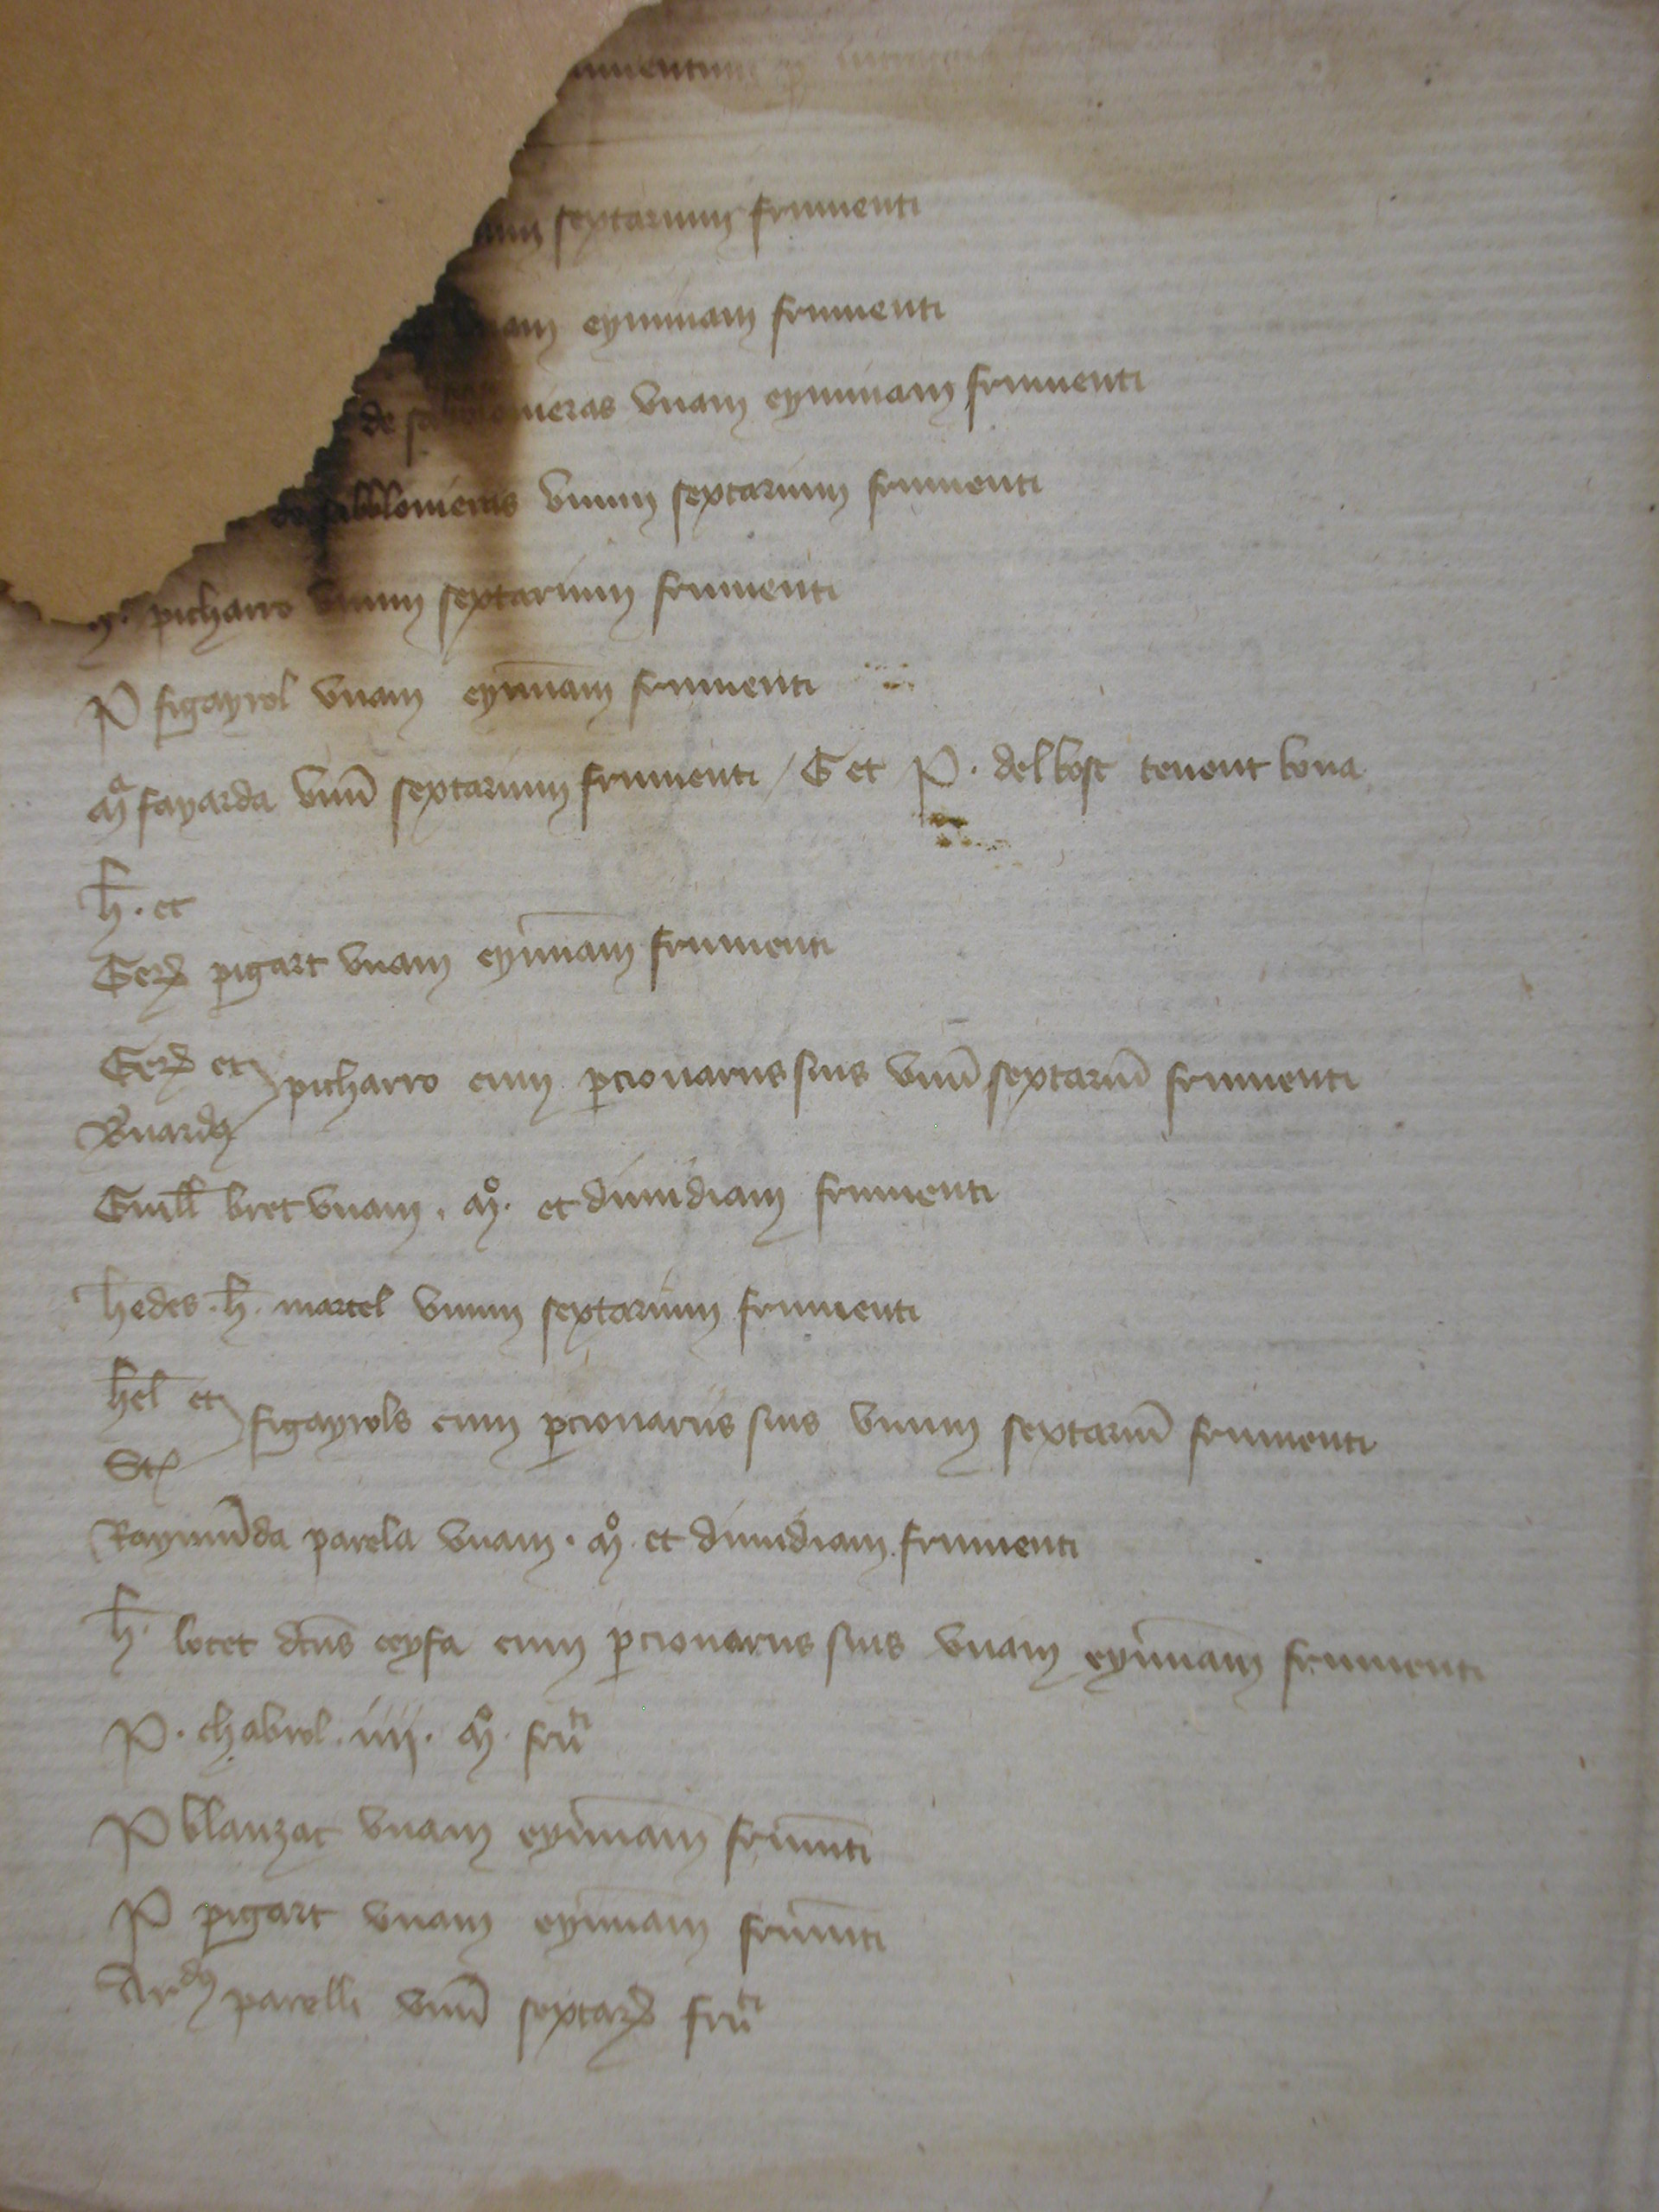 septarium frumenti
unam eyminam frumenti
de sabblonieras unam eyminam frumenti
de sabblonieras unum septarium frumenti
picharro unum septarium frumenti
P figayrol unam eyminam frumenti
mᵃ fayarda unū septarium frumenti / G et P. delbosc tenent bona
h̄. et
Gerᵈ pigart unam eymīnam frumenti
Gerᵈ et picharro cum ꝑcionariis suis unū septariū frumenti
Bnardꝰ
Guill̄ bret unam. mᵒ. et dimidiam frumenti
hedes. h̄. martel unum septarium frumenti
h̄el et figayrols cum ꝑcionariis suis unum septariū frumenti
Stꝭ
Raymūda parela unam. mᵒ et dimidiam frumenti
h̄. lotet dcūs ceyfa cum ꝑcionariis suis unam eymīnam frumenti
P. chabrol. iiij. mᵒ. fruᵗⁱ
P blanzac unam eymīnam frumēti
P pigart unam eymīnam frumēti
Arᵈꝰ parelli unū septarꝭ fruᵗⁱ